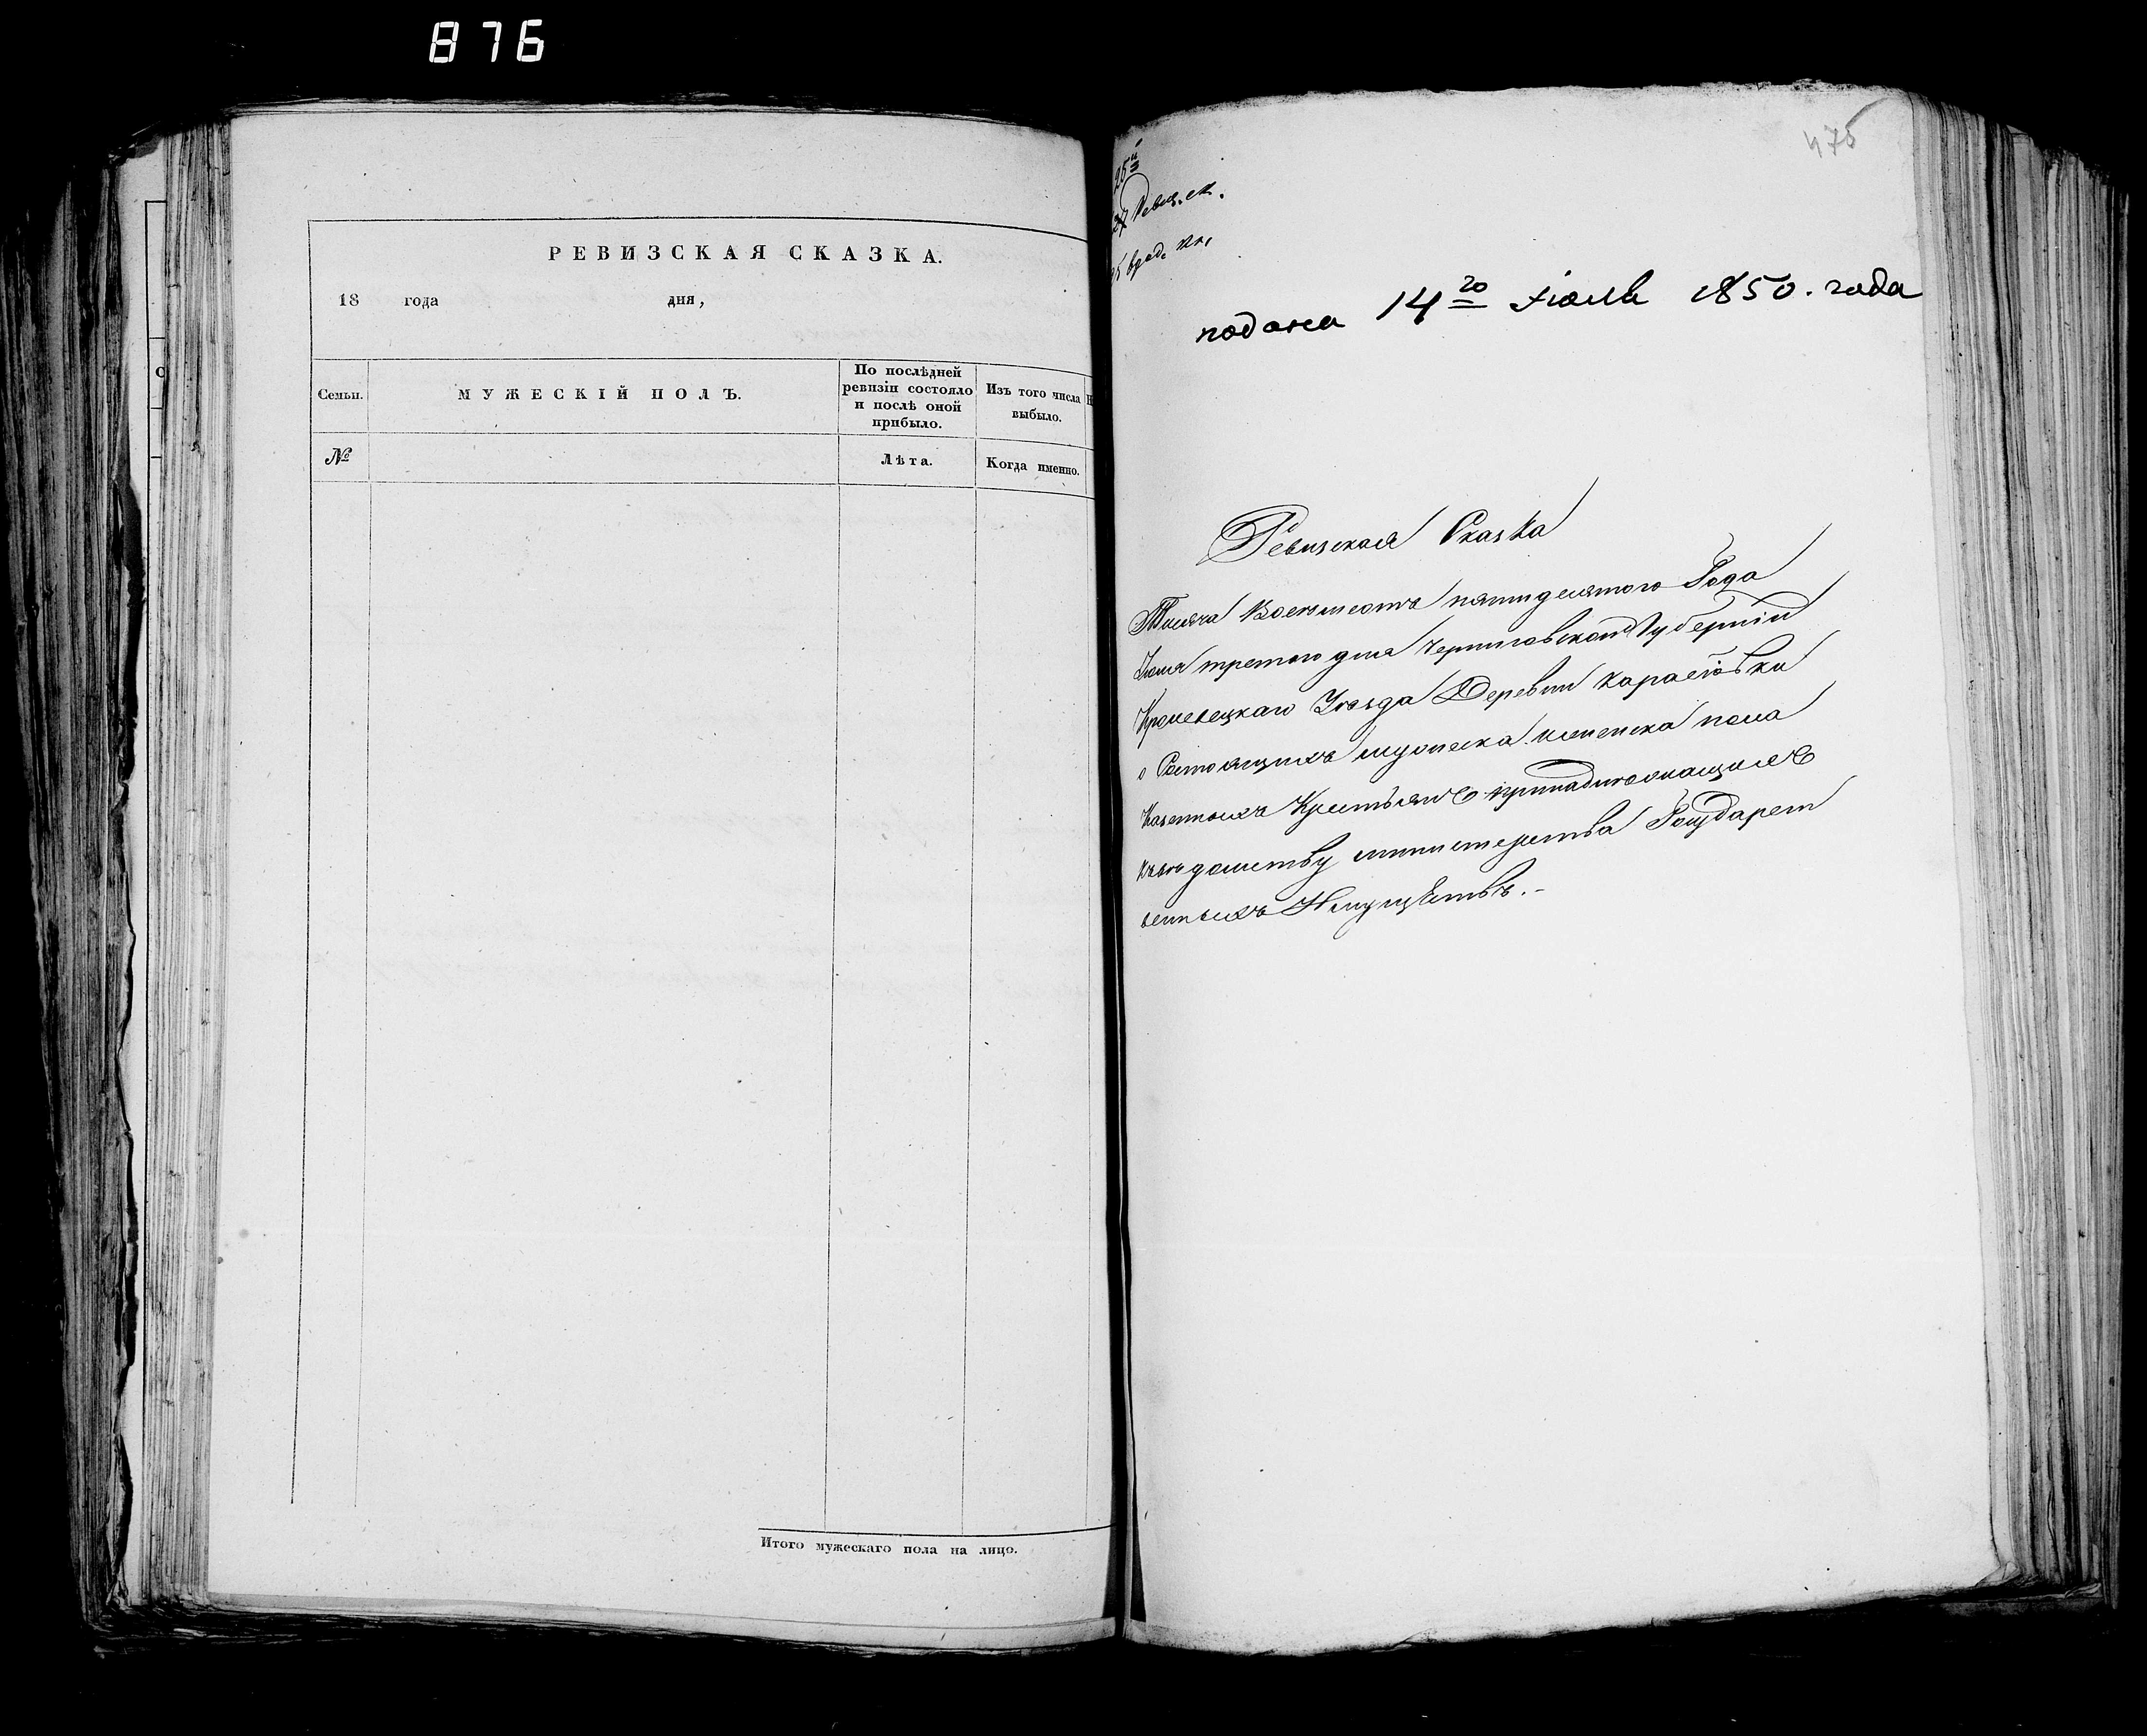 876
РЕВИЗСКАЯ СКАЗКА.
18 года дня,
Семьи. МУЖЕСКІЙ ПОЛЪ. По послѣдней ревизіи состояло и послѣ оной прибыло. Изъ того числа выбыло.
№ Лѣта. Когда именно.
Итого мужескаго пола на лицо.
475
25й
Ревиз. ск.
подана 14го Іюля 1850. года
Ревизская Сказка
Тысяча Восемьсотъ пятидесятого Года
третого дня Черниговской Губерніи
Кролевецкаго Уѣзда Деревни
о Состоящихъ мужеска и женска пола
Казенныхъ Крестьянъ принадлежащихъ
вѣдомству министерства Государст
венныхъ Имуществъ.-